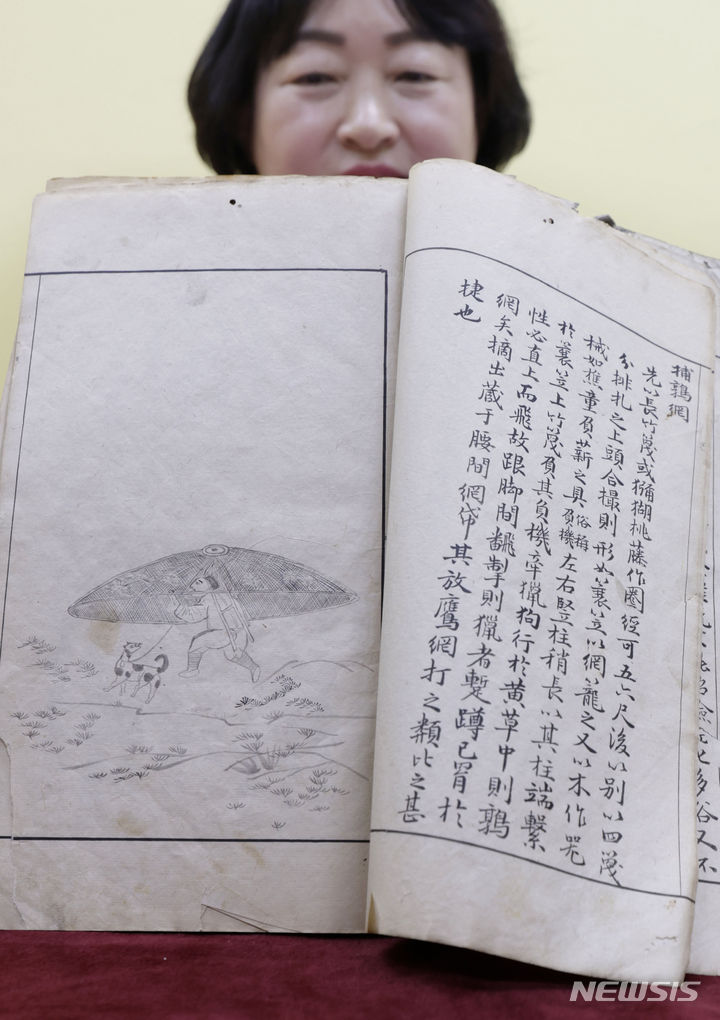 捕鶉網
先以長竹篾或獼猢桃藤作圈經可五六尺後以別以四篾
分排扎之上頭合撮則形如簑笠以網籠之又以木作器
械如樵童負薪之具俗稱負機左右竪柱稍長以其柱端繫
於簑笠上竹篾負其負機牽獵狗行於黄草中則鶉
性必直上而飛故跟脚間飜掣則獵者蹔蹲已罥於
網矣摘出蔵于腰間網帒其放鷹網打之類比之甚
捷也
NEWSIS